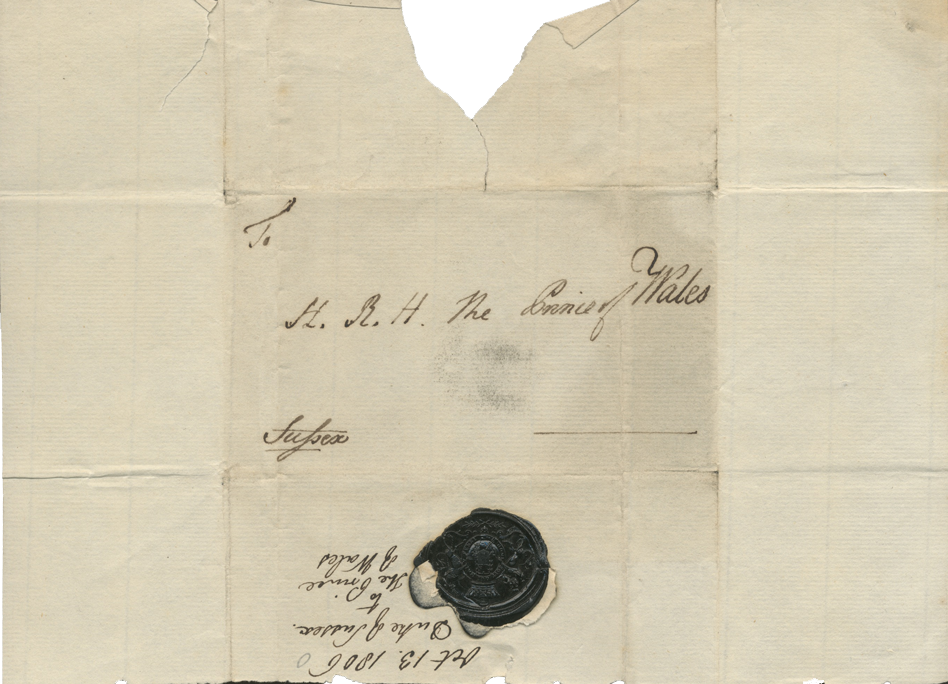 To
H. R. H. The Prince of Wales
Sussex
Oct 13. 1806
Duke of Sussex.
to
the Prince
of Wales